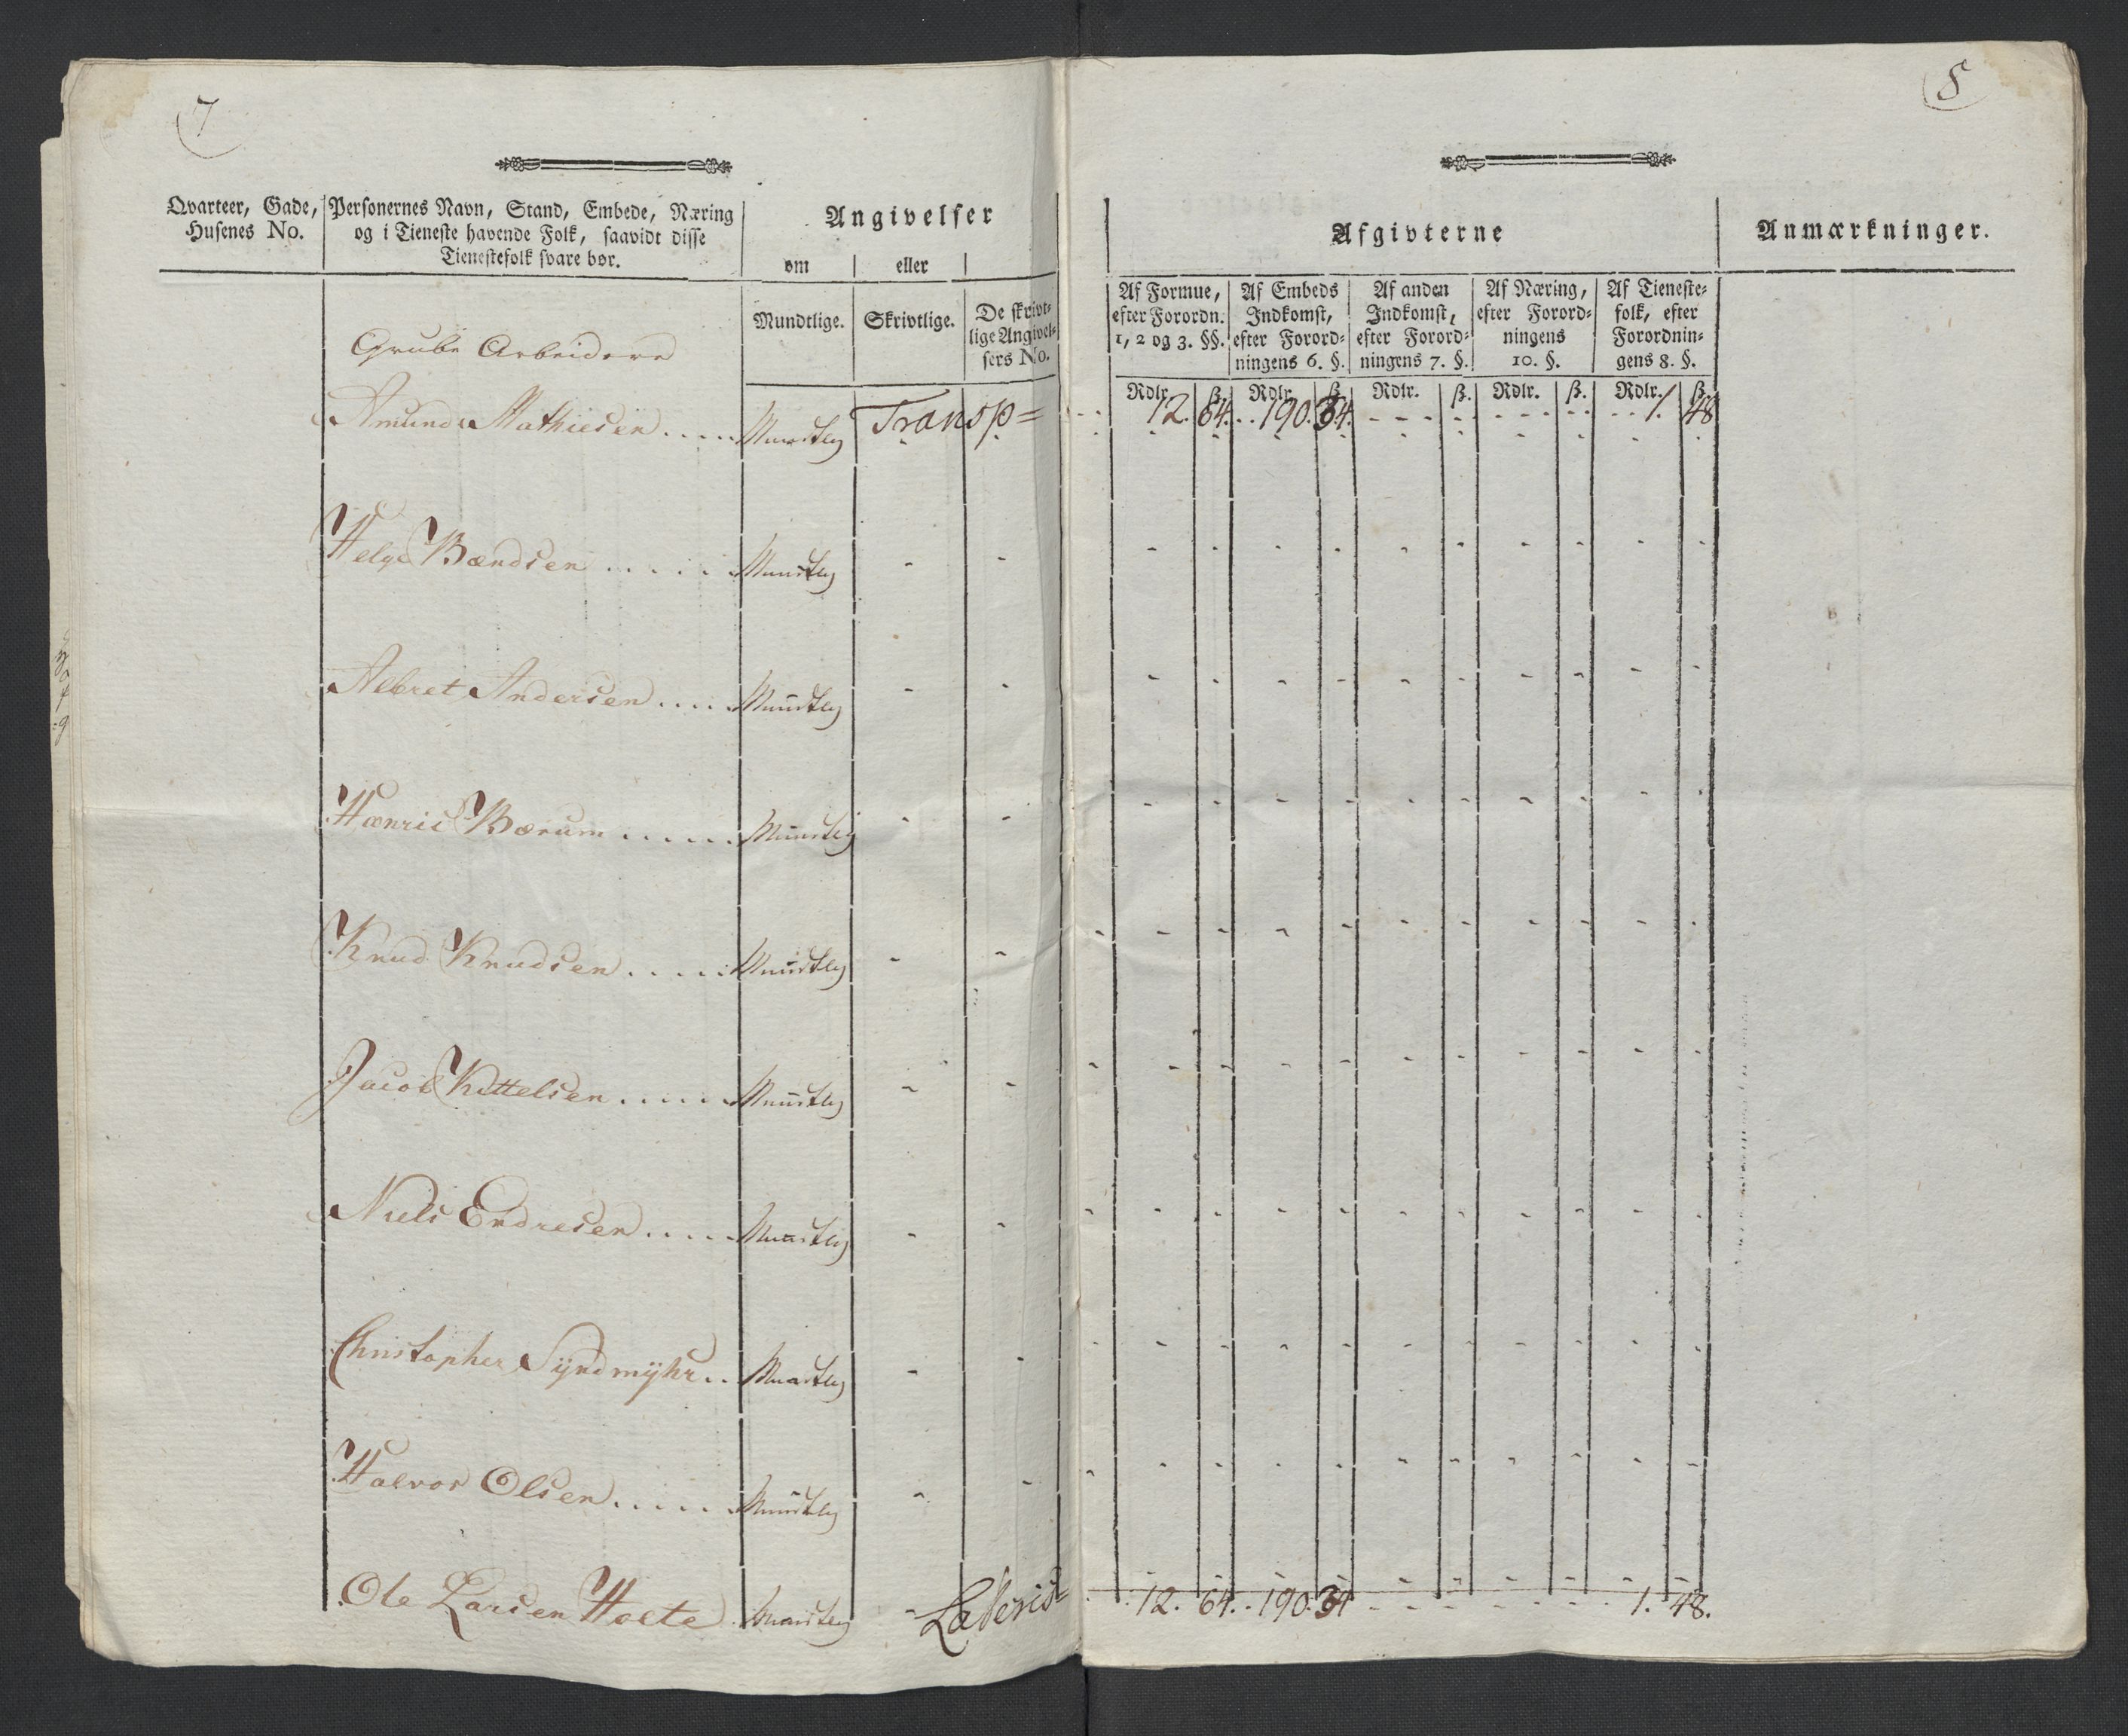 7
Qvarteer, Gade, Husenes No.
Personernes Navn, Stand, Embede, Næring
og i Tieneste havende Folk, saavidt disse
Tienestefolk svare bør.
Angivelser
om eller
Mundtlige. Skrivtlige. De skrivt-
lige Angivel-
sers No.
Grube Arbeidere
Amund Mathiesen ..... Mundtlig Transp=
Helge Bændsen ..... Mundtlig - -
Albret Andersen .... Mundtlig - -
Hænric Bærum ..... Mundtlig - -
Knud Knudsen ..... Mundtlig - -
Jacob Kittelsen ..... Mundtlig - -
Niels Endresen .... Mundtlig - -
Christopher Syndmyhr .. Mundtlig - -
Halvor Olsen ..... Mundtlig - -
Ole Larsen Holte Mundtlig - Lateris
8
Afgivterne
Anmærkninger.
Af Formue,
efter Forordn.
1, 2 og 3. §§.
Af Embeds
Indkomst,
efter Forord-
ningens 6. §.
Af anden
Indkomst,
efter Forord-
ningens 7. §.
Af Næring,
efter Forord-
ningens
10. §.
Af Tieneste-
folk, efter
Forordnin-
gens 8. §.
Rdlr. ß. Rdlr. ß. Rdlr. ß. Rdlr. ß. Rdlr. ß.
12. 64. 190. 34. - - - - 1. 48
12. 64. 190. 34 - - - - 1. 48.